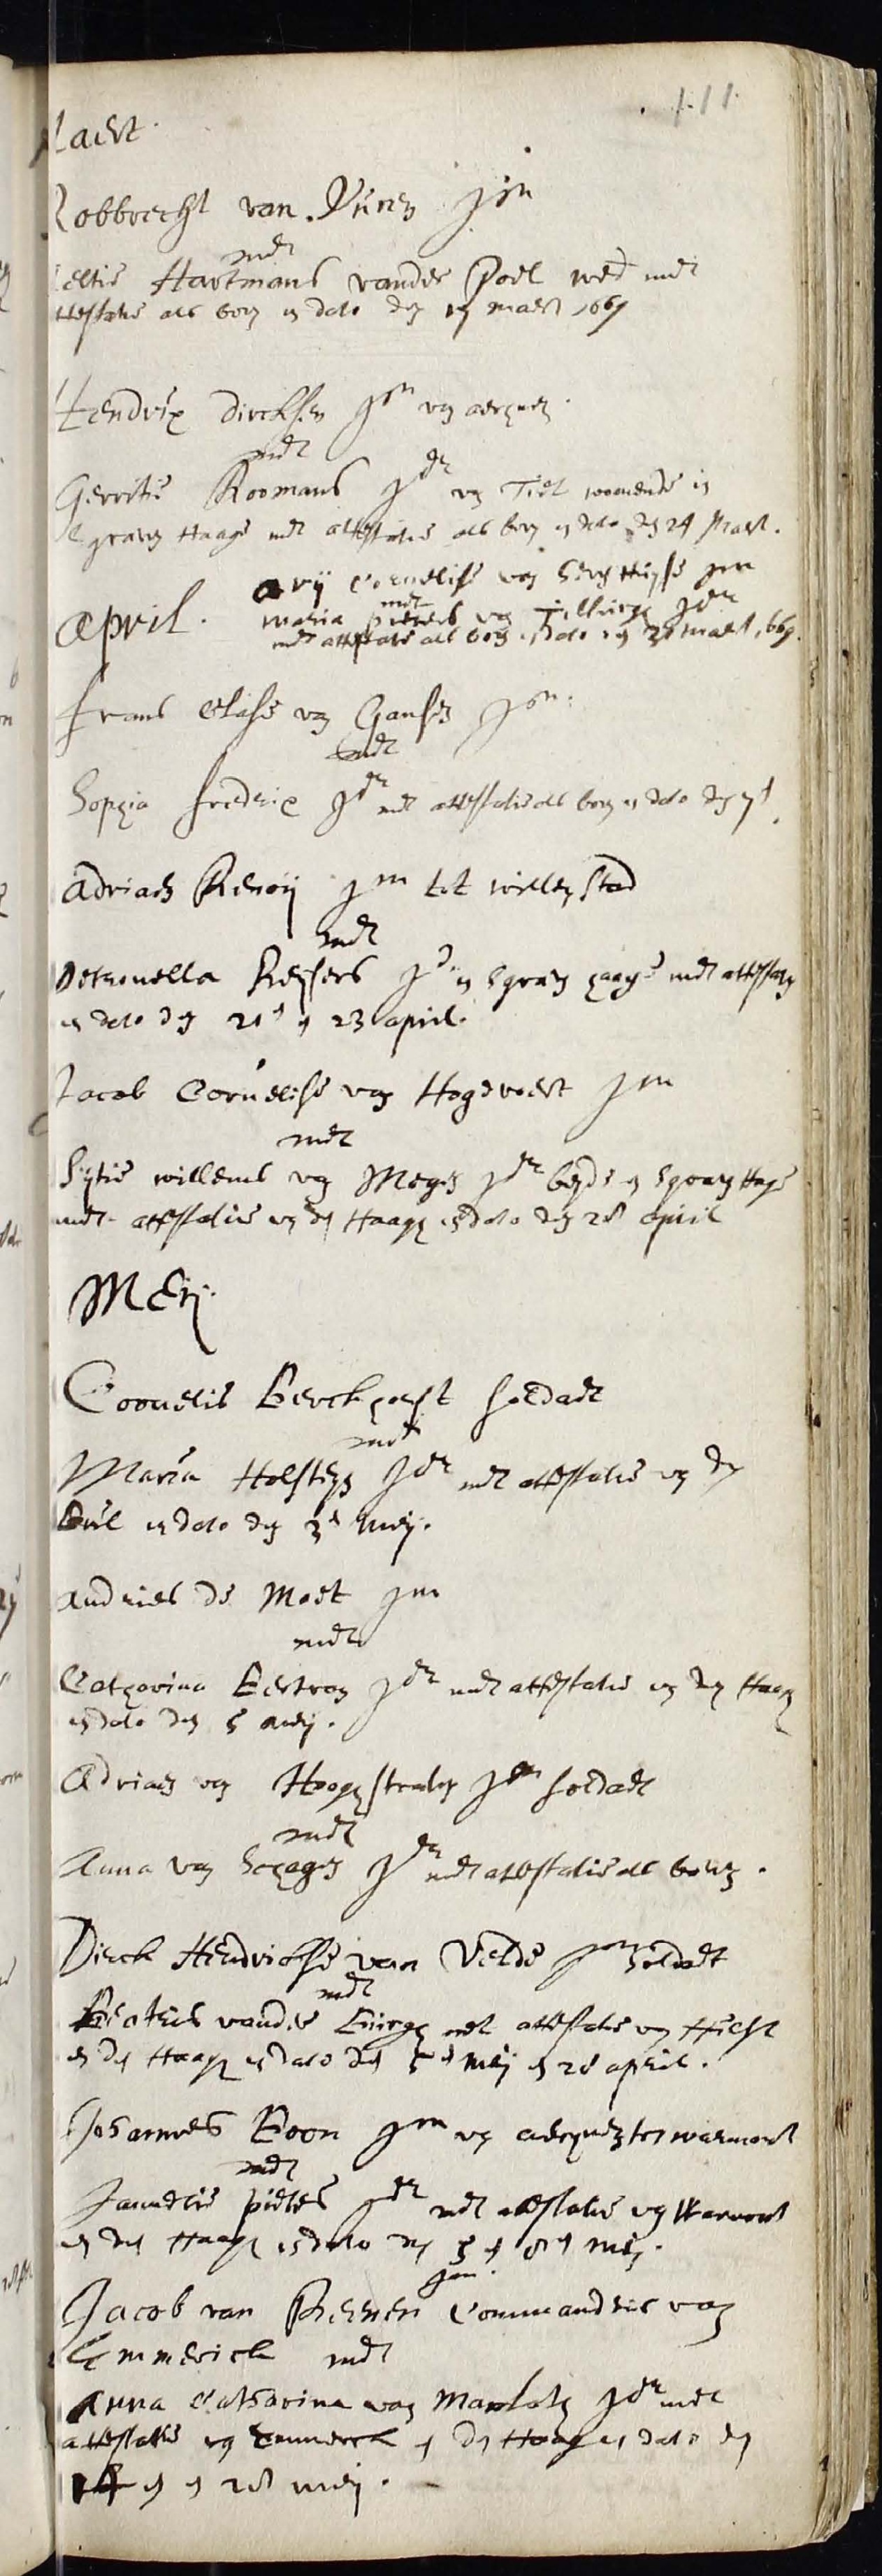 111
Maert.
Robbrecht van Vuren jm
met
Hartmans vander Poel wed met
attestatie als boven in dato den 17 maert 1669
Hendrix Dircksen jm van
met
Gerritie Koomans jd van Tiel woonende in
s graven Haage met attestatie als boven in dato den 24 Maert.
Arij Cornelisse van jm
met
April. Maria Pieters van Tilburgh jd
met attestatie als boven in dato den 30 maert 1669.
Frans Clase van Gansen jm:
met
Sophia Fredrix jd met attestatie als boven in dato den 7d.
Adriaen Renoij jm tot willemstad
met
Petronella Keijsers jd in sgraven haage met attestatie
in dato den 21 en 23 april.
Jacob Cornelisse van Hogevoert jm
met
Sijtie willems van Megen jd beijde in sgraven Hage
met attestatie van den Haage in dato den 28 april
Meij.
Cornelis Berckhorst soldaet
met
Maria Holsteyn jd met attestatie van den
Briel in dato den 3d Meij.
Andries de Moet jm
met
Catharina jd met attestatie van den Haage
in dato den 5 meij.
Adriaen van Hooghstraten jm soldaet
met
Anna van Schagen jd met attestatie als boven.
Dirck Hendrickse van Velde jm soldaet
met
Beatris vander Burgh met attestatie van Hulst
en den Haage in dato den 5d Meij en 28 april.
Johannes Boon jm van tot warmont
met
Jannetie Pieters jd met attestatie van Warmont
en den Haage in dato den 5 en 8d meij.
jm.
Jacob van Reenen Commandeur van
Emmerick met
Anna Catharina van jd met
attestatie van Emmerck en den Haage in dato den
14 en 28 meij.